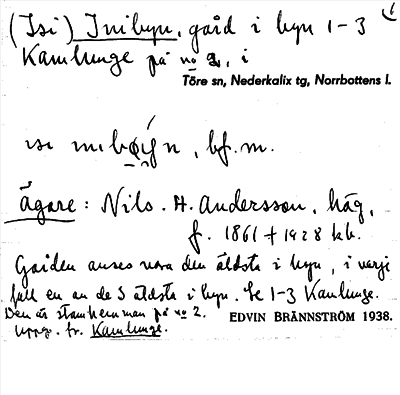 (Isi) Inibyn, gård i byn 1-3
Kamlunge på no 2, i
Töre sn, Nederkalix tg, Norrbottens l.
bf. m.
ägare: Nils. A. Andersson, häg,
f. 1861 + 1928 kb.
Gården anses vara den äldsta i byn, i varje
fall en av de 3 äldsta i byn. Se 1-3 Kamlunge.
Den är stamhemman på no 2.
Uppg. fr. Kamlunge.
EDVIN BRÄNNSTRÖM 1938.